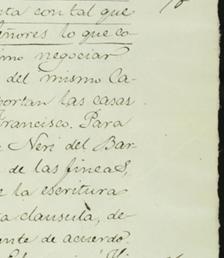 nta con tal que
eñores lo que co
imo negociar
del mismo Ca-
portan las casas
Francisco. Para
Neri del Bar-
de las fincas,
la escritura
a clausula, de-
ente de acuerdo.